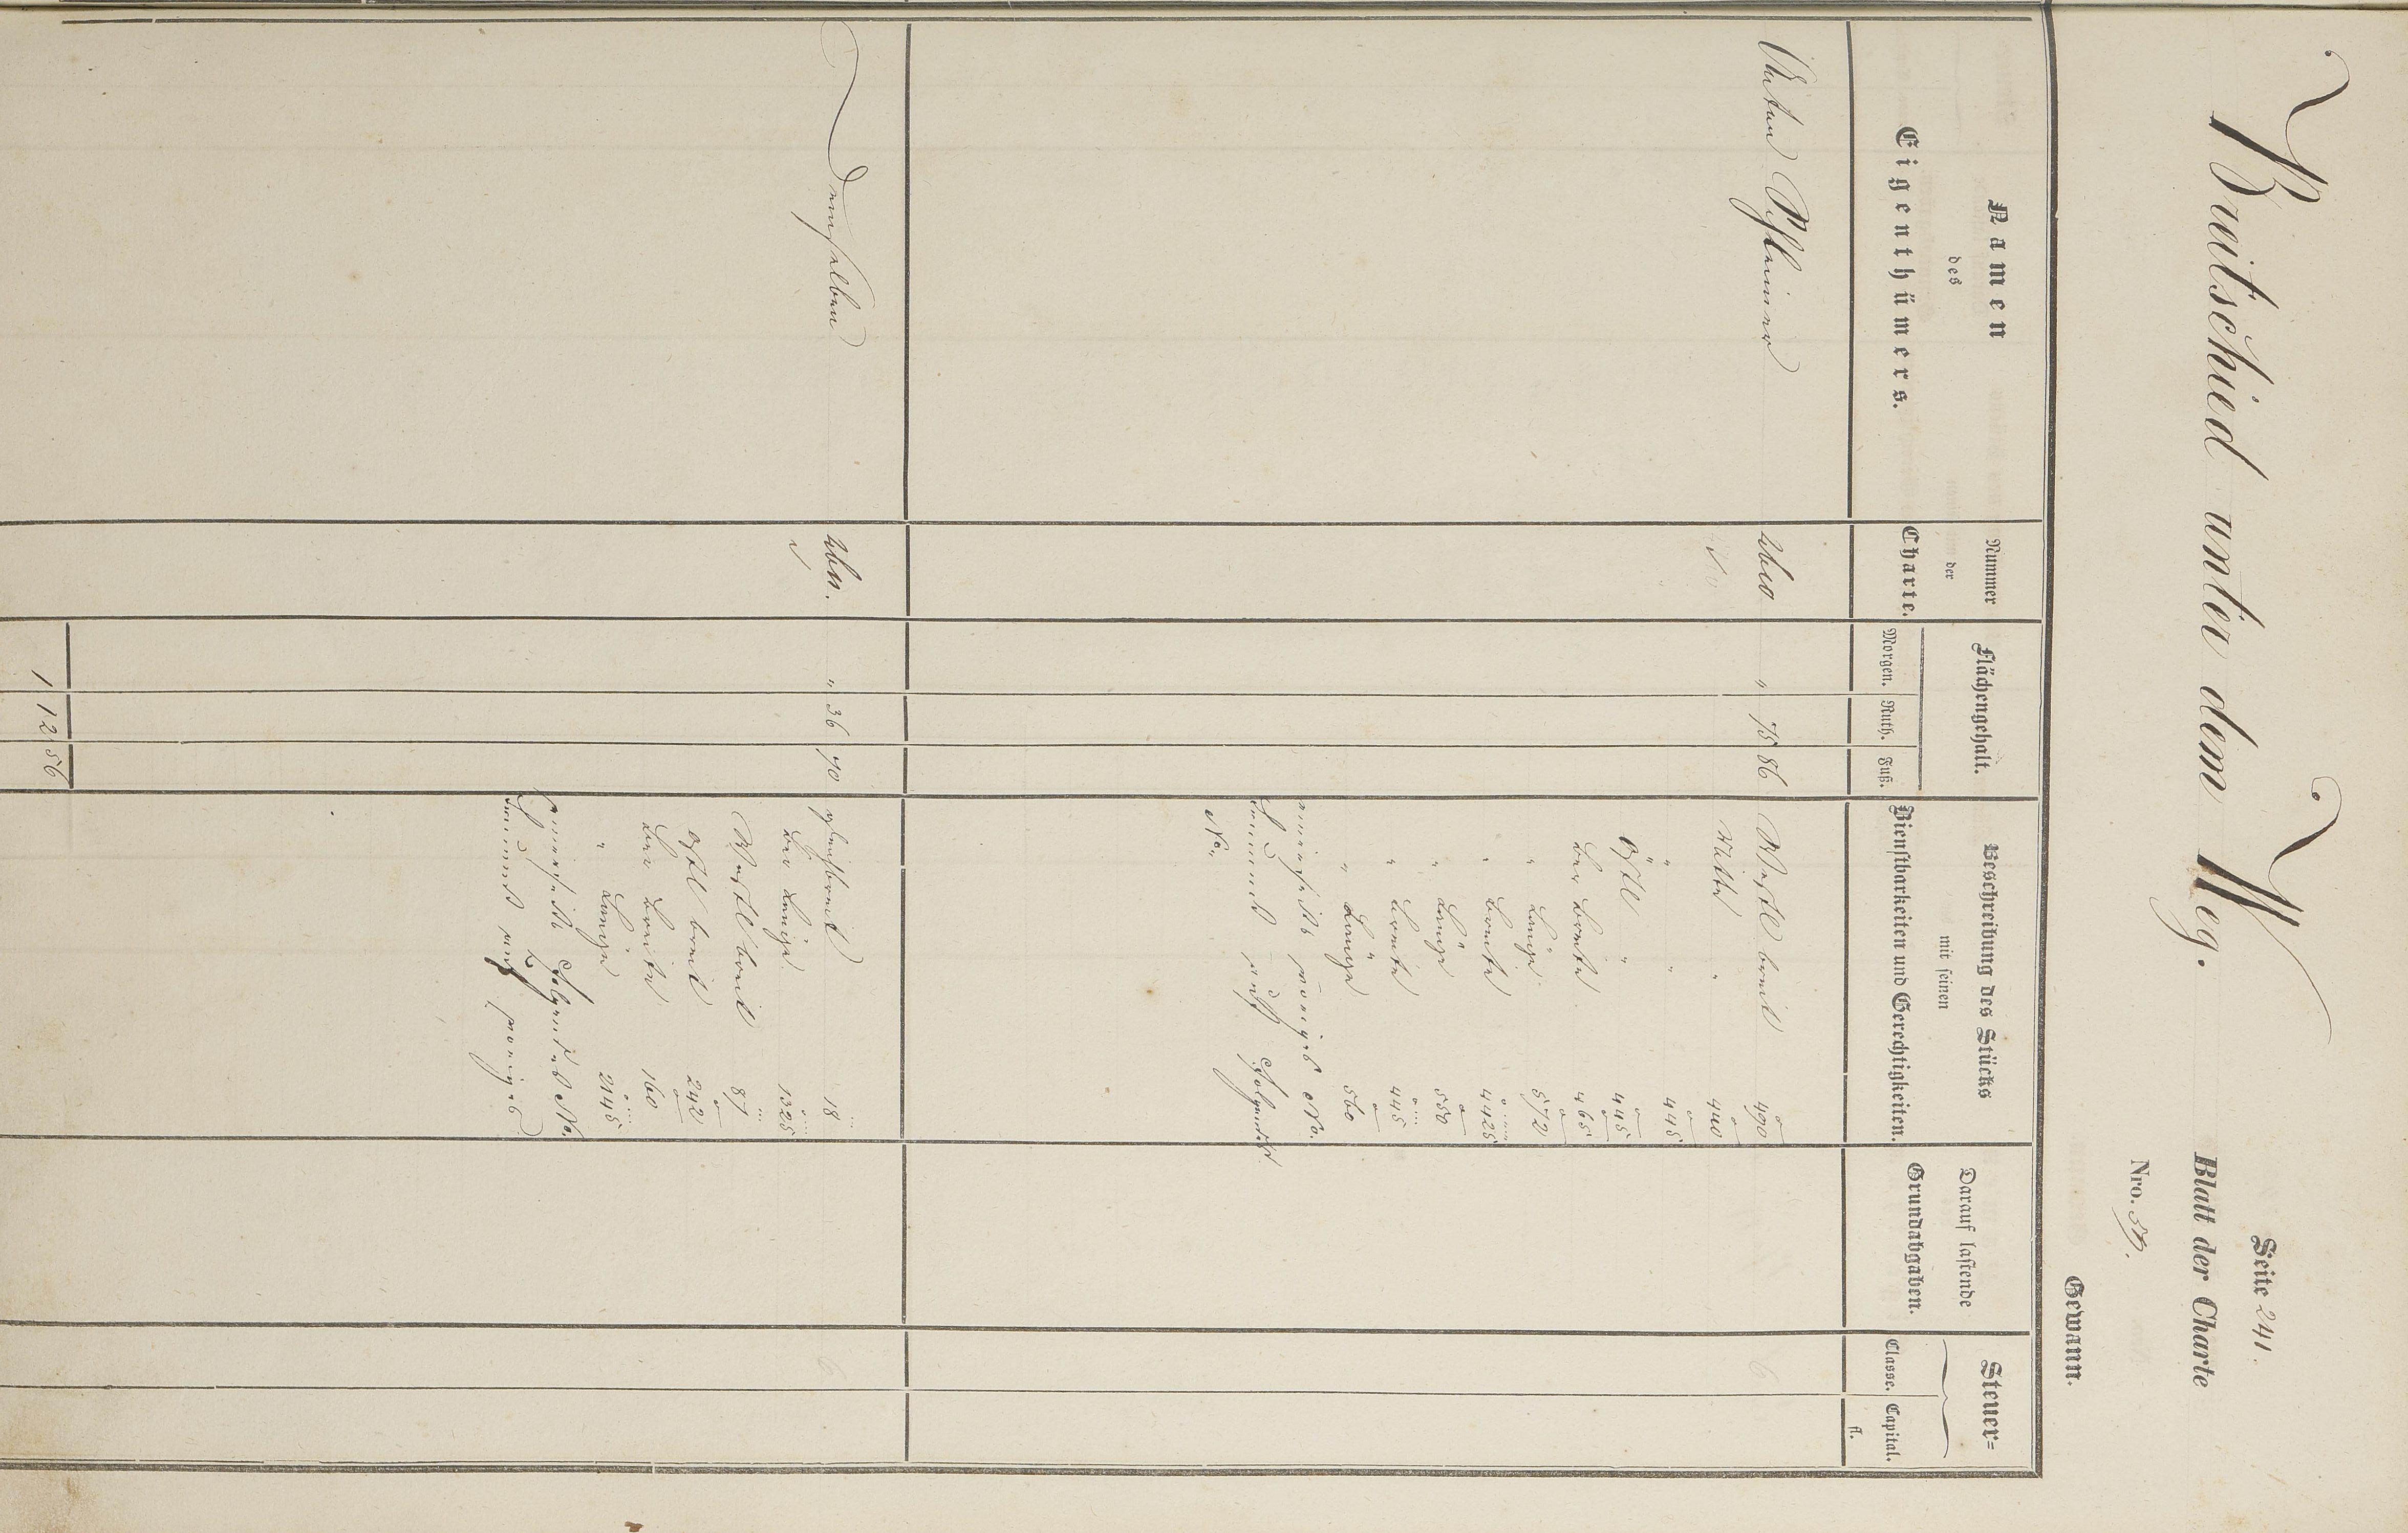 Seite 241.
Breitschied unter dem Weg.
Blatt der Charte
Nro. 59.
Gewann.
Namen
des
Eigenthümers.
Nummer
der
Charte.
Flächengehalt.
Morgen. Ruth. Fuß.
Beschreibung des Stücks
mit seinen
Dienstbarkeiten und Gerechtigkeiten.
Darauf lastende
Grundabgaben.
Steuer=
Classe. Capital.
fl.
2610 " 75 86 Westl breit 490 6
Mitte " 440
" " 445
Östl " 445
Der Breite 465
" Länge 572
" Breite 4425
" Länge 550
" Breite 445
" Länge 560
No.
Denselben 2611. " 36 70 gleichbreit 18 6
Der Länge 1325
Westl breit 87
Östl breit 242
Der Breite 160
" Länge 2145
1 12 56